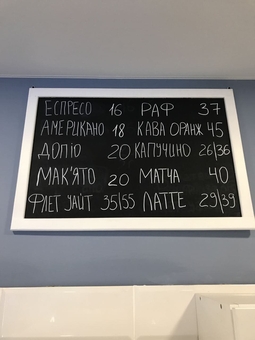 ЕСПРЕСО 16 РАФ 37
АМЕРИКАНО 18 КАВА ОРАНЖ 45
ДОПІО 20 КАПУЧИНО 26/36
МАК'ЯТО 20 МАТЧА 40
ФЛЕТ УАЙТ 35/55 ЛАТТЕ 29/39